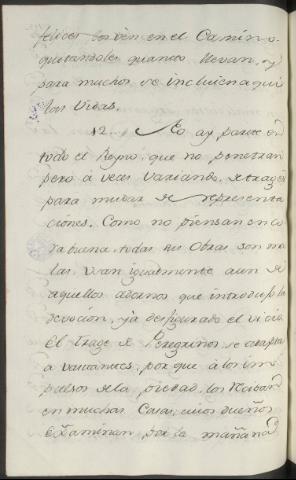 felices los vèn en el Camino
quitandoles quanto llevan, y
para muchos se incluien aqui
las Vidas.
12. No ay parte en
todo el Reyno, que no penetran
pero à veces Variando, de trage
para mudar de representa
ciones. Como no piensan en co
sa buena, todas sus Obras son ma
las. Usan igualmente aun de
aquellos adornos que introdujo la
devocion, y à desfigurado el vicio
El trage de Peregrinos se adapta
a vastantes, por que à los im
pulsos de la piedad, los Reciben
en muchas Casas, cuios dueños
Examinan por la mañana